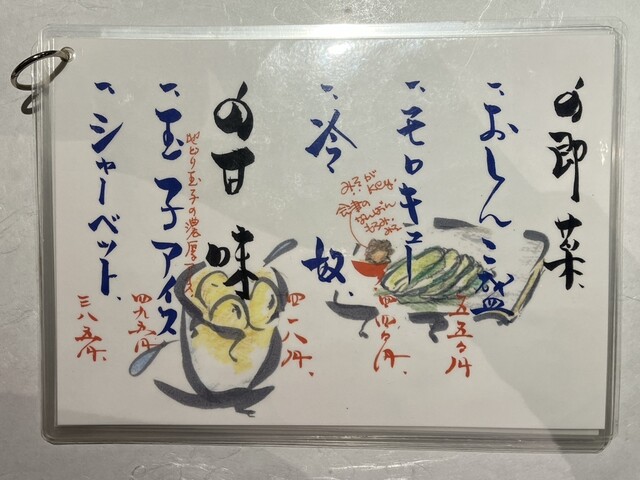 の即菜
一、おしんこ盛
五五〇円
一、モロキュー
みそが
Key。
四四〇円
一、冷奴
四一八円、
の甘味
一、玉子アイス
地どり玉子の濃厚アイス
四九五円
一、シャーベット、
三八五円、